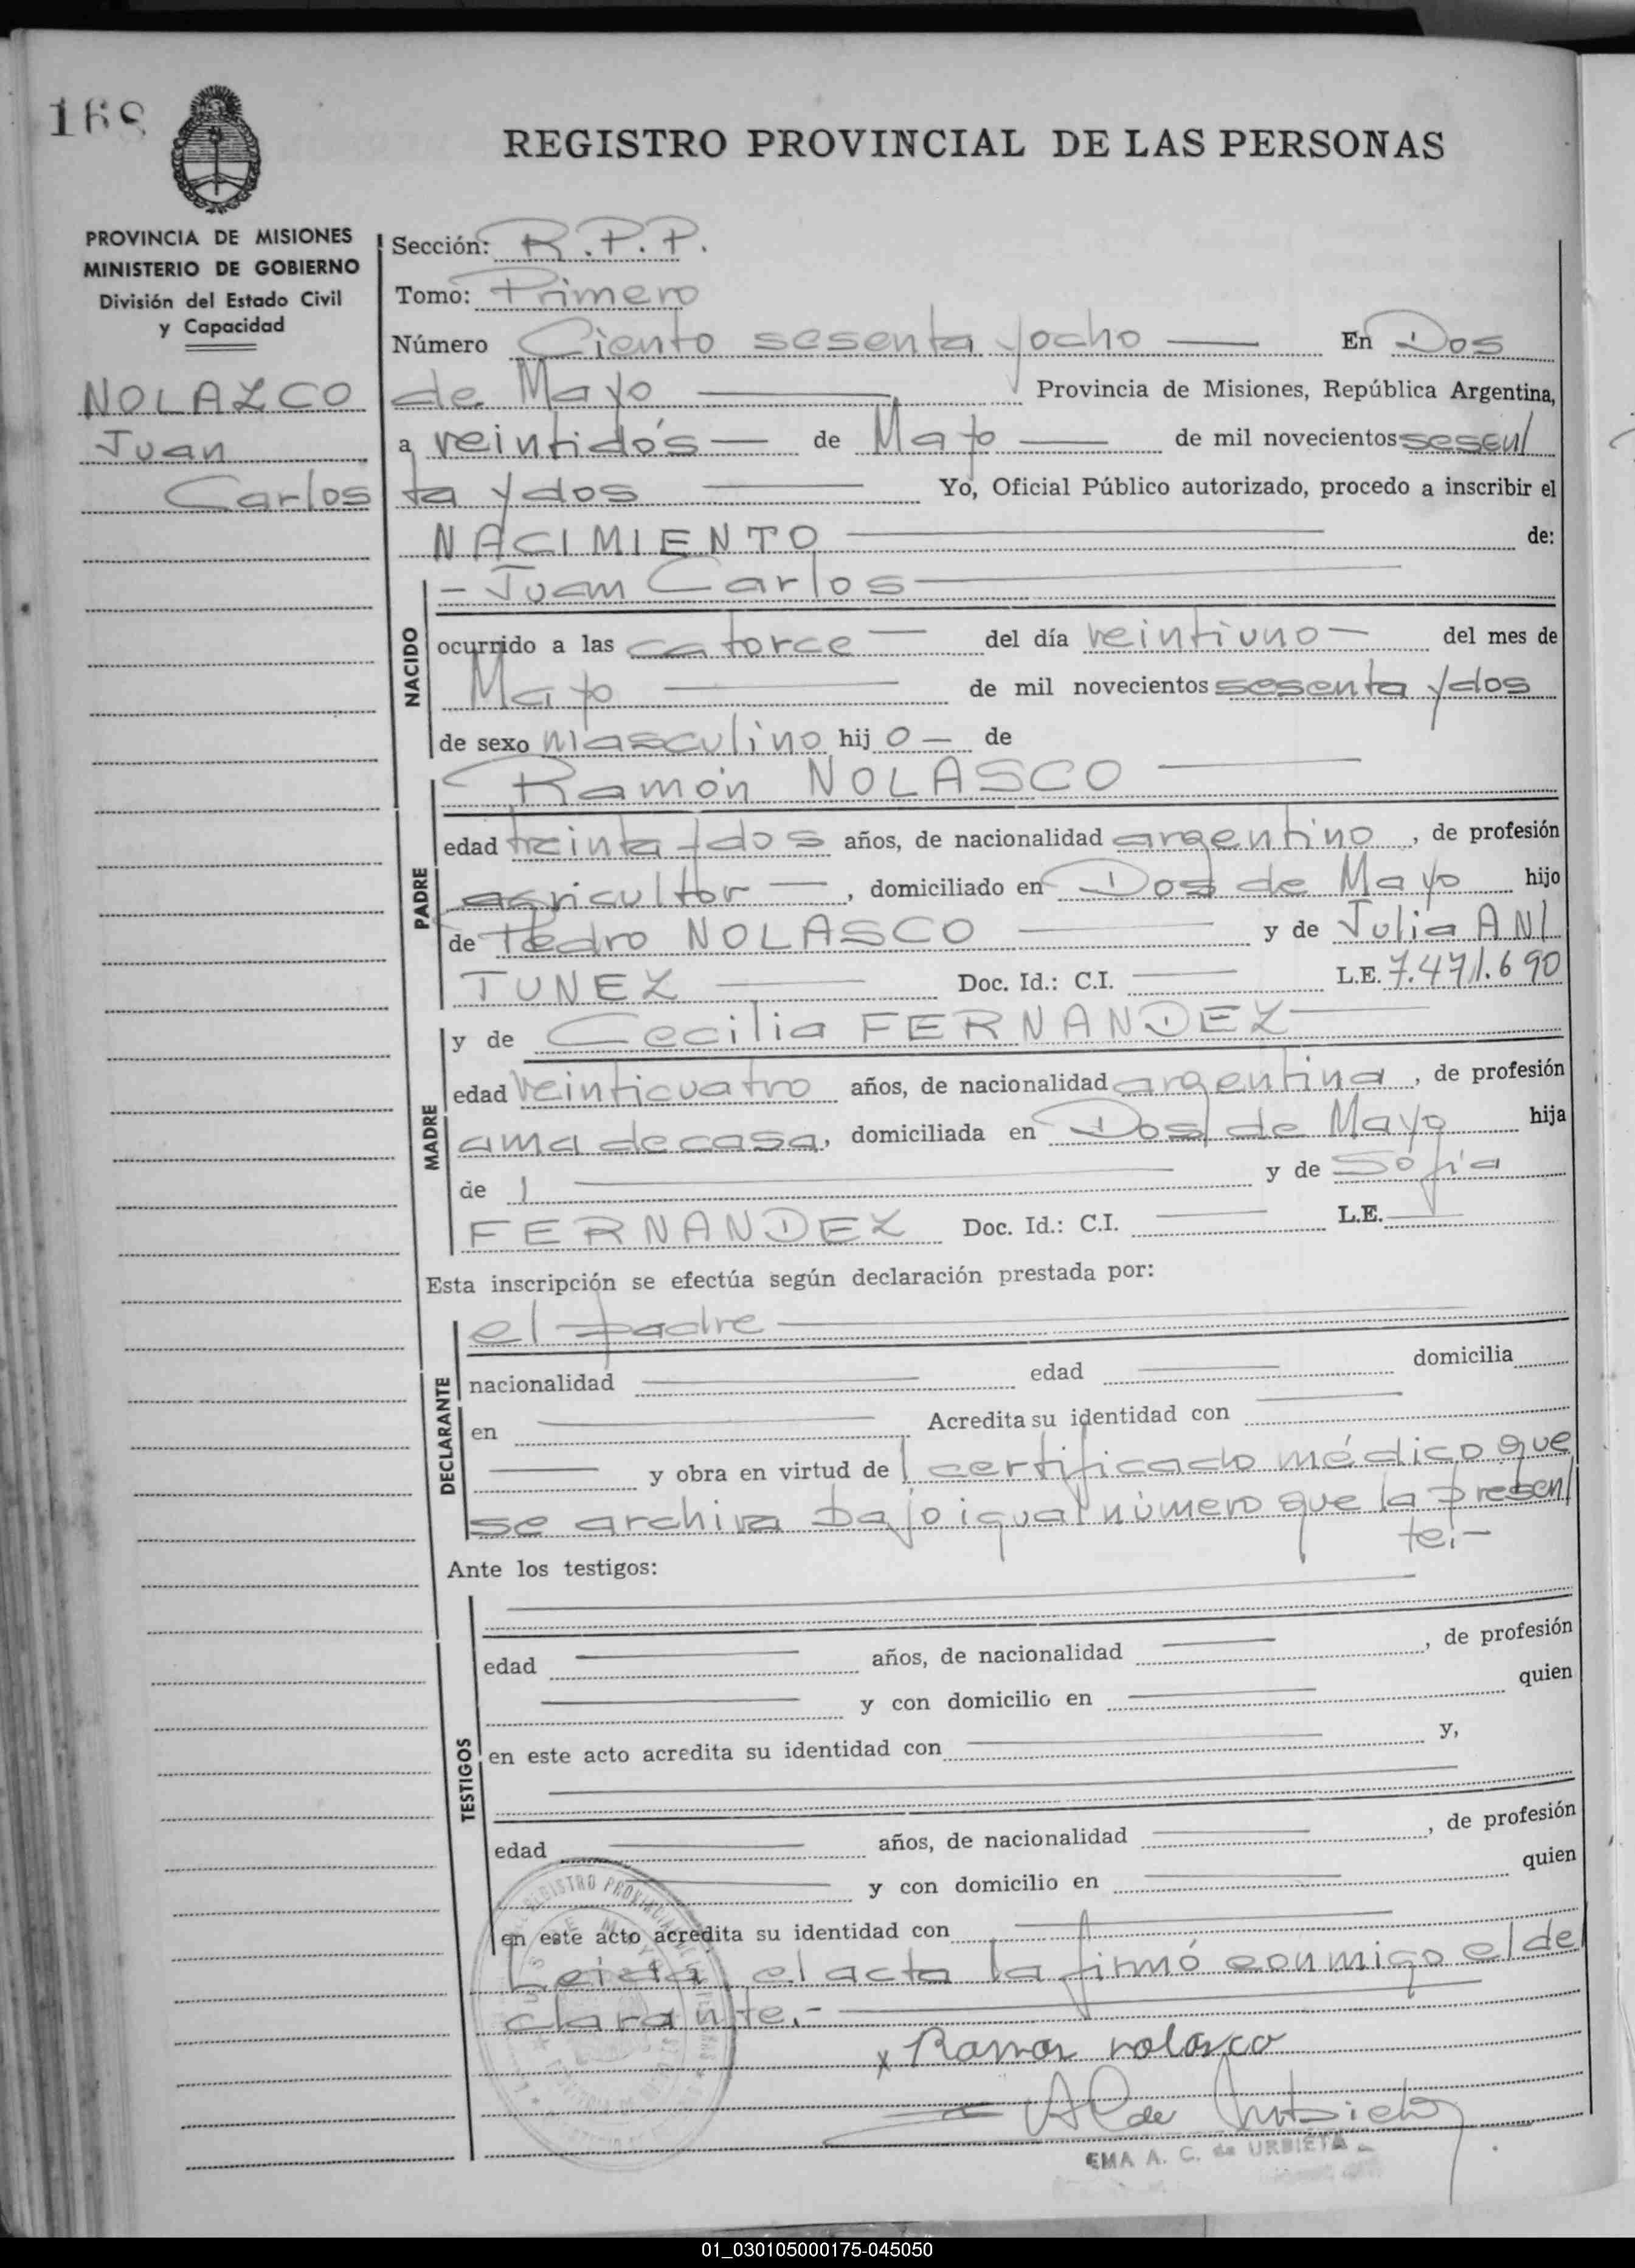 168
REGISTRO PROVINCIAL DE LAS PERSONAS
PROVINCIA DE MISIONES
MINISTERIO DE GOBIERNO
División del Estado Civil
y Capacidad
NOLAZCO
Juan
Carlos
Sección: R.P.P.
Tomo: Primero
Número Ciento sesenta y ocho — En Dos
de Mayo — Provincia de Misiones, República Argentina,
a veintidós — de Mayo — de mil novecientos sesen/
ta y dos — Yo, Oficial Público autorizado, procedo a inscribir el
NACIMIENTO — de:
NACIDO
- Juan Carlos —
ocurrido a las catorce — del día veintiuno — del mes de
Mayo — de mil novecientos sesenta y dos
de sexo masculino hij o — de
PADRE
Ramón NOLASCO —
edad treinta y dos años, de nacionalidad argentino, de profesión
agricultor —, domiciliado en Dos de Mayo hijo
de Pedro NOLASCO — y de Julia AN/
TUNEZ — Doc. Id.: C.I. — L.E. 7.471.690
MADRE
y de Cecilia FERNANDEZ —
edad veinticuatro años, de nacionalidad argentina, de profesión
ama de casa, domiciliada en Dos de Mayo hija
de / — y de Sofia
FERNANDEZ Doc. Id.: C.I. — L.E. —
Esta inscripción se efectúa según declaración prestada por:
DECLARANTE
el padre —
nacionalidad — edad — domicilia
en — Acredita su identidad con —
— y obra en virtud de / certificado médico que
se archiva bajo igual número que la presen/
te.-
Ante los testigos:
TESTIGOS
edad — años, de nacionalidad —, de profesión
— y con domicilio en — quien
en este acto acredita su identidad con — y,
edad — años, de nacionalidad —, de profesión
— y con domicilio en — quien
en este acto acredita su identidad con —
Leida el acta la firmó conmigo el de/
clarante.- —
x Ramon nolasco
EMA A. C. de URBIETA
REGISTRO PROVINCIAL
01_030105000175-045050